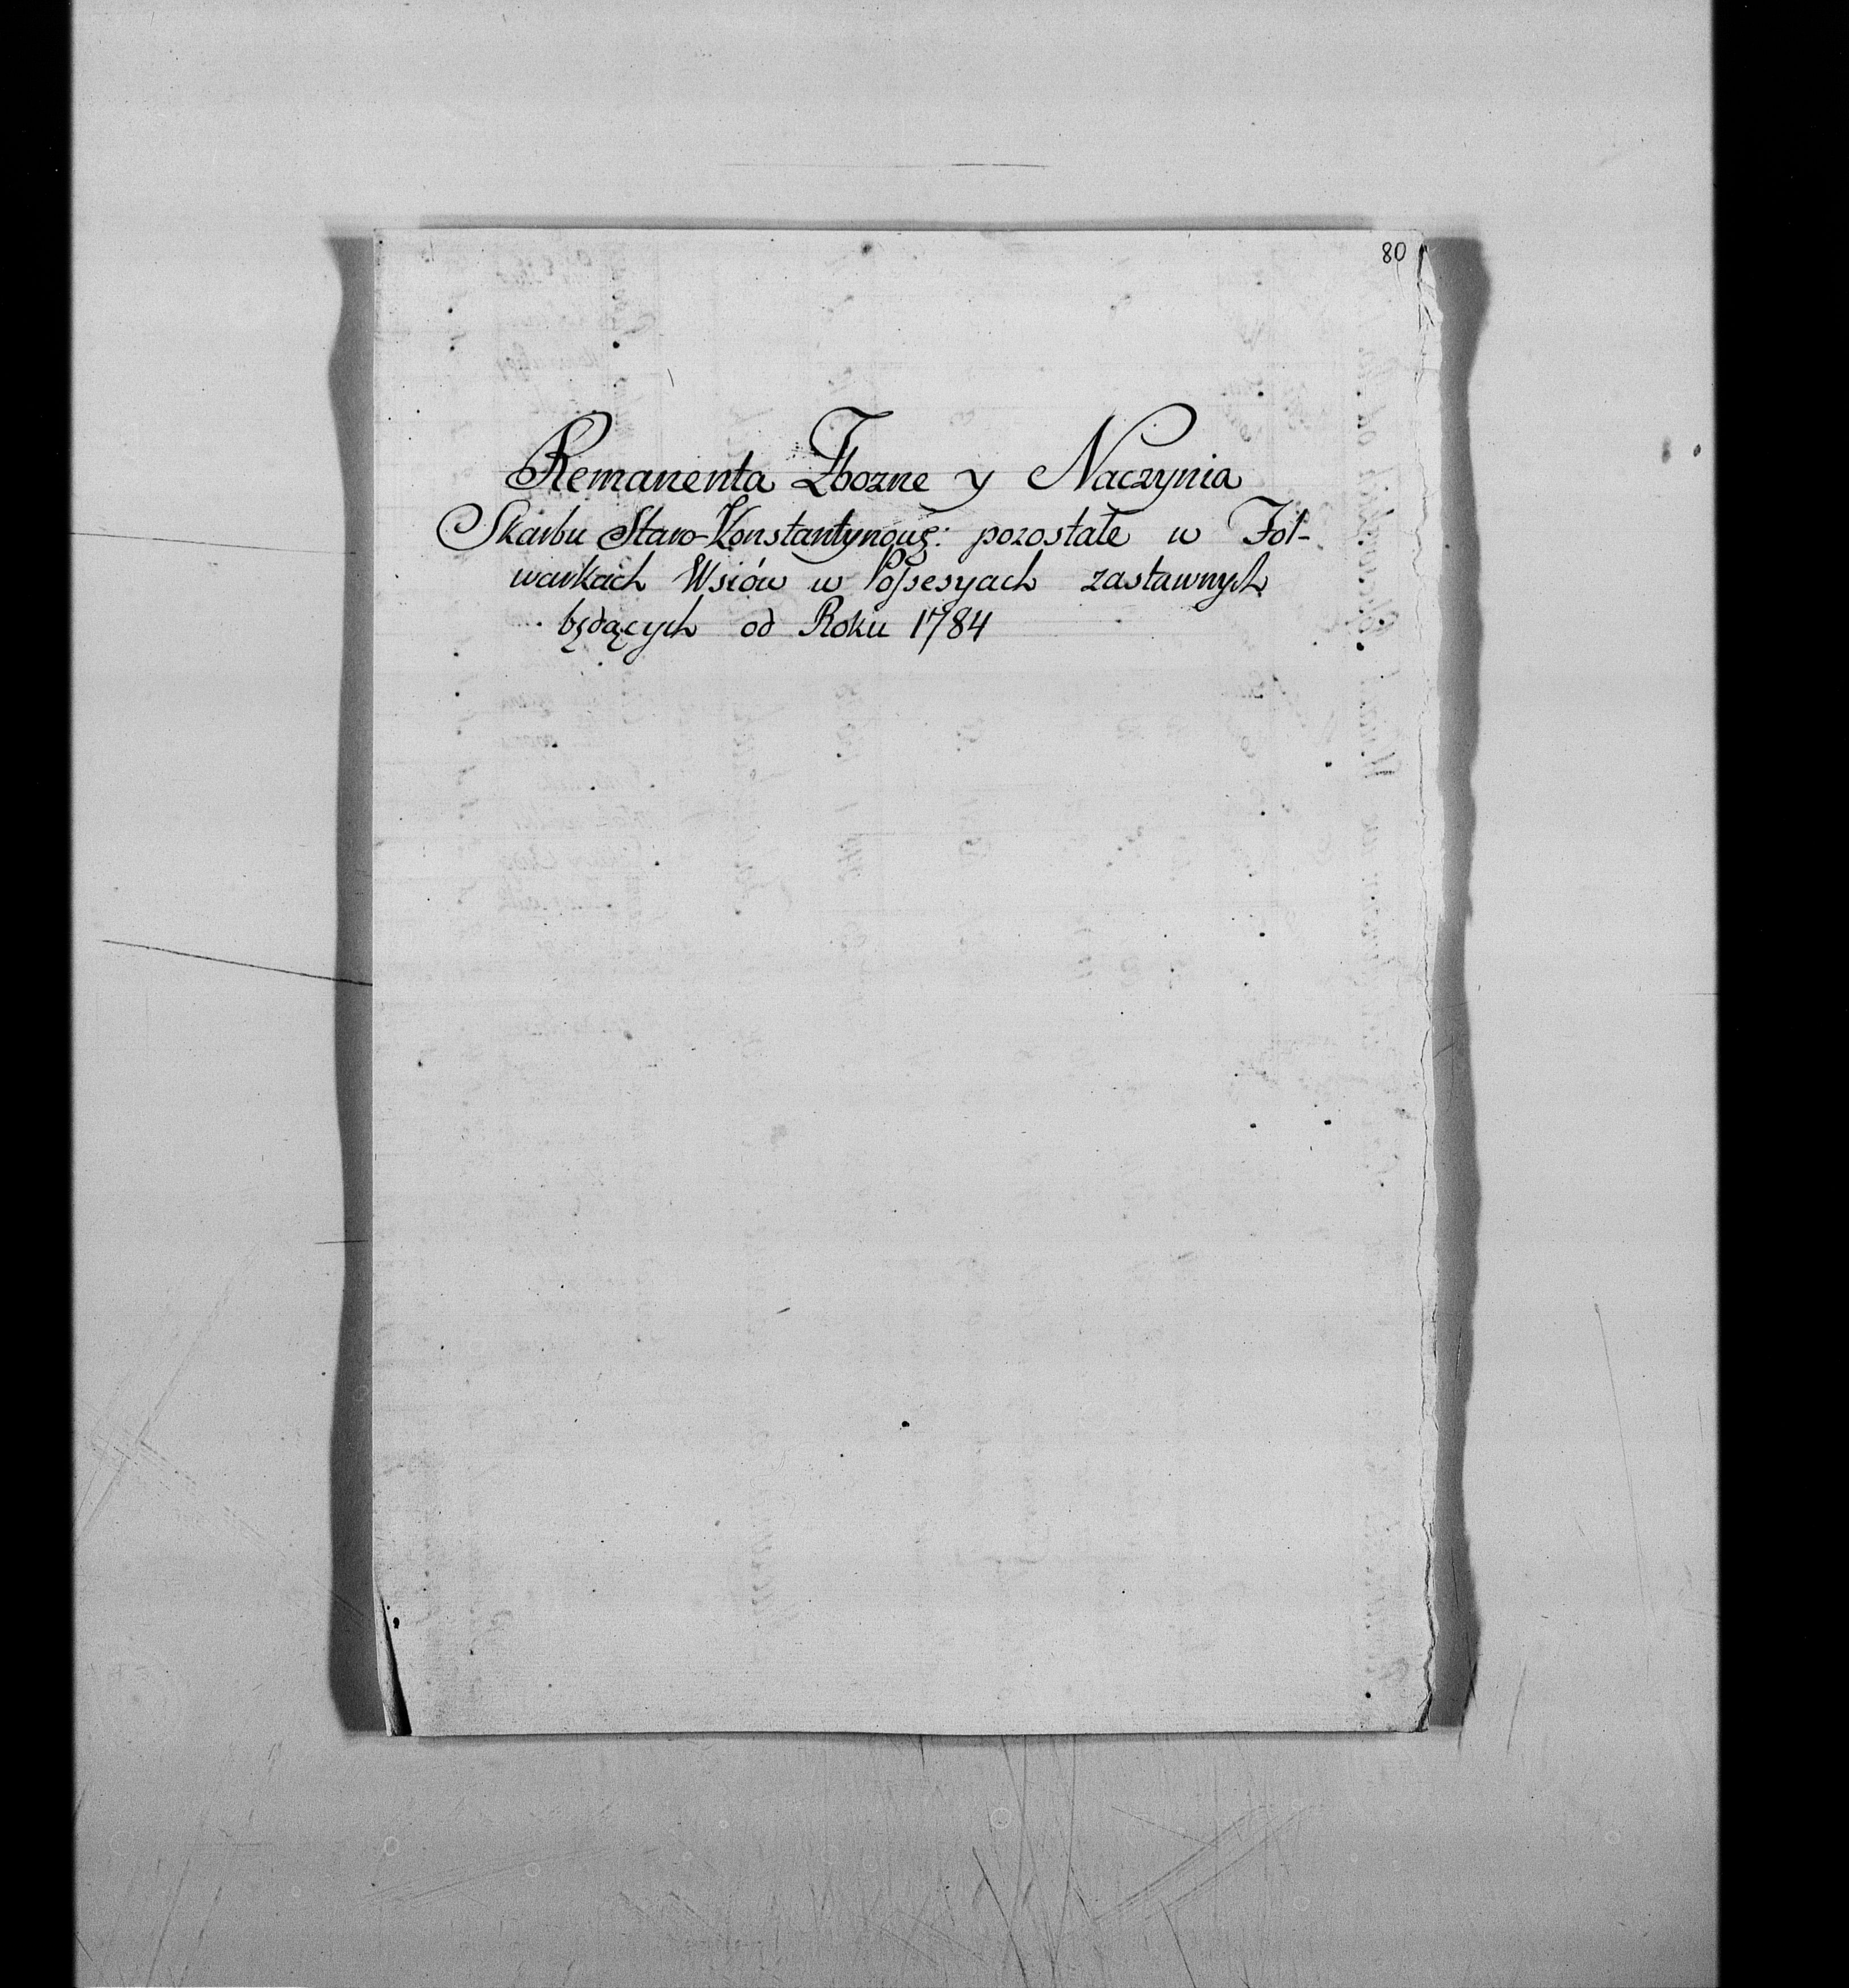 80
Remanenta Zbozne y Naczynia
Skarbu Staro-Konstantynowg: pozostałe w Fol-
warkach Wsiów w Possesyach zastawnych
będących od Roku 1784